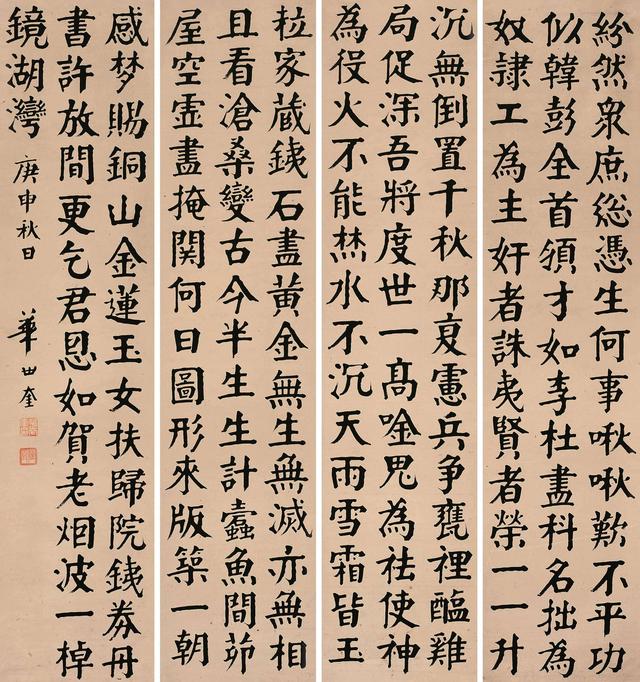 紛然衆庶総憑生何事啾啾歎不平功
似韓彭全首領才如李杜盡科名拙為
奴隸工為主奸者誅夷賢者榮一一升
沉無倒置千秋那憲兵爭甕裡醯雞
局促深吾將度世一高唫鬼為祛使神
為役火不能焚水不沉天雨雪霜皆玉
粒家藏銕石盡黃金無生無滅亦無相
且看滄桑變古今半生生計蠹魚間茆
屋空虛晝掩関何日圖形來版築一朝
感梦賜銅山金蓮玉女扶歸院銕券丹
書許放間更乞君恩如賀老烟波一棹
鏡湖灣 庚申秋日 華世奎